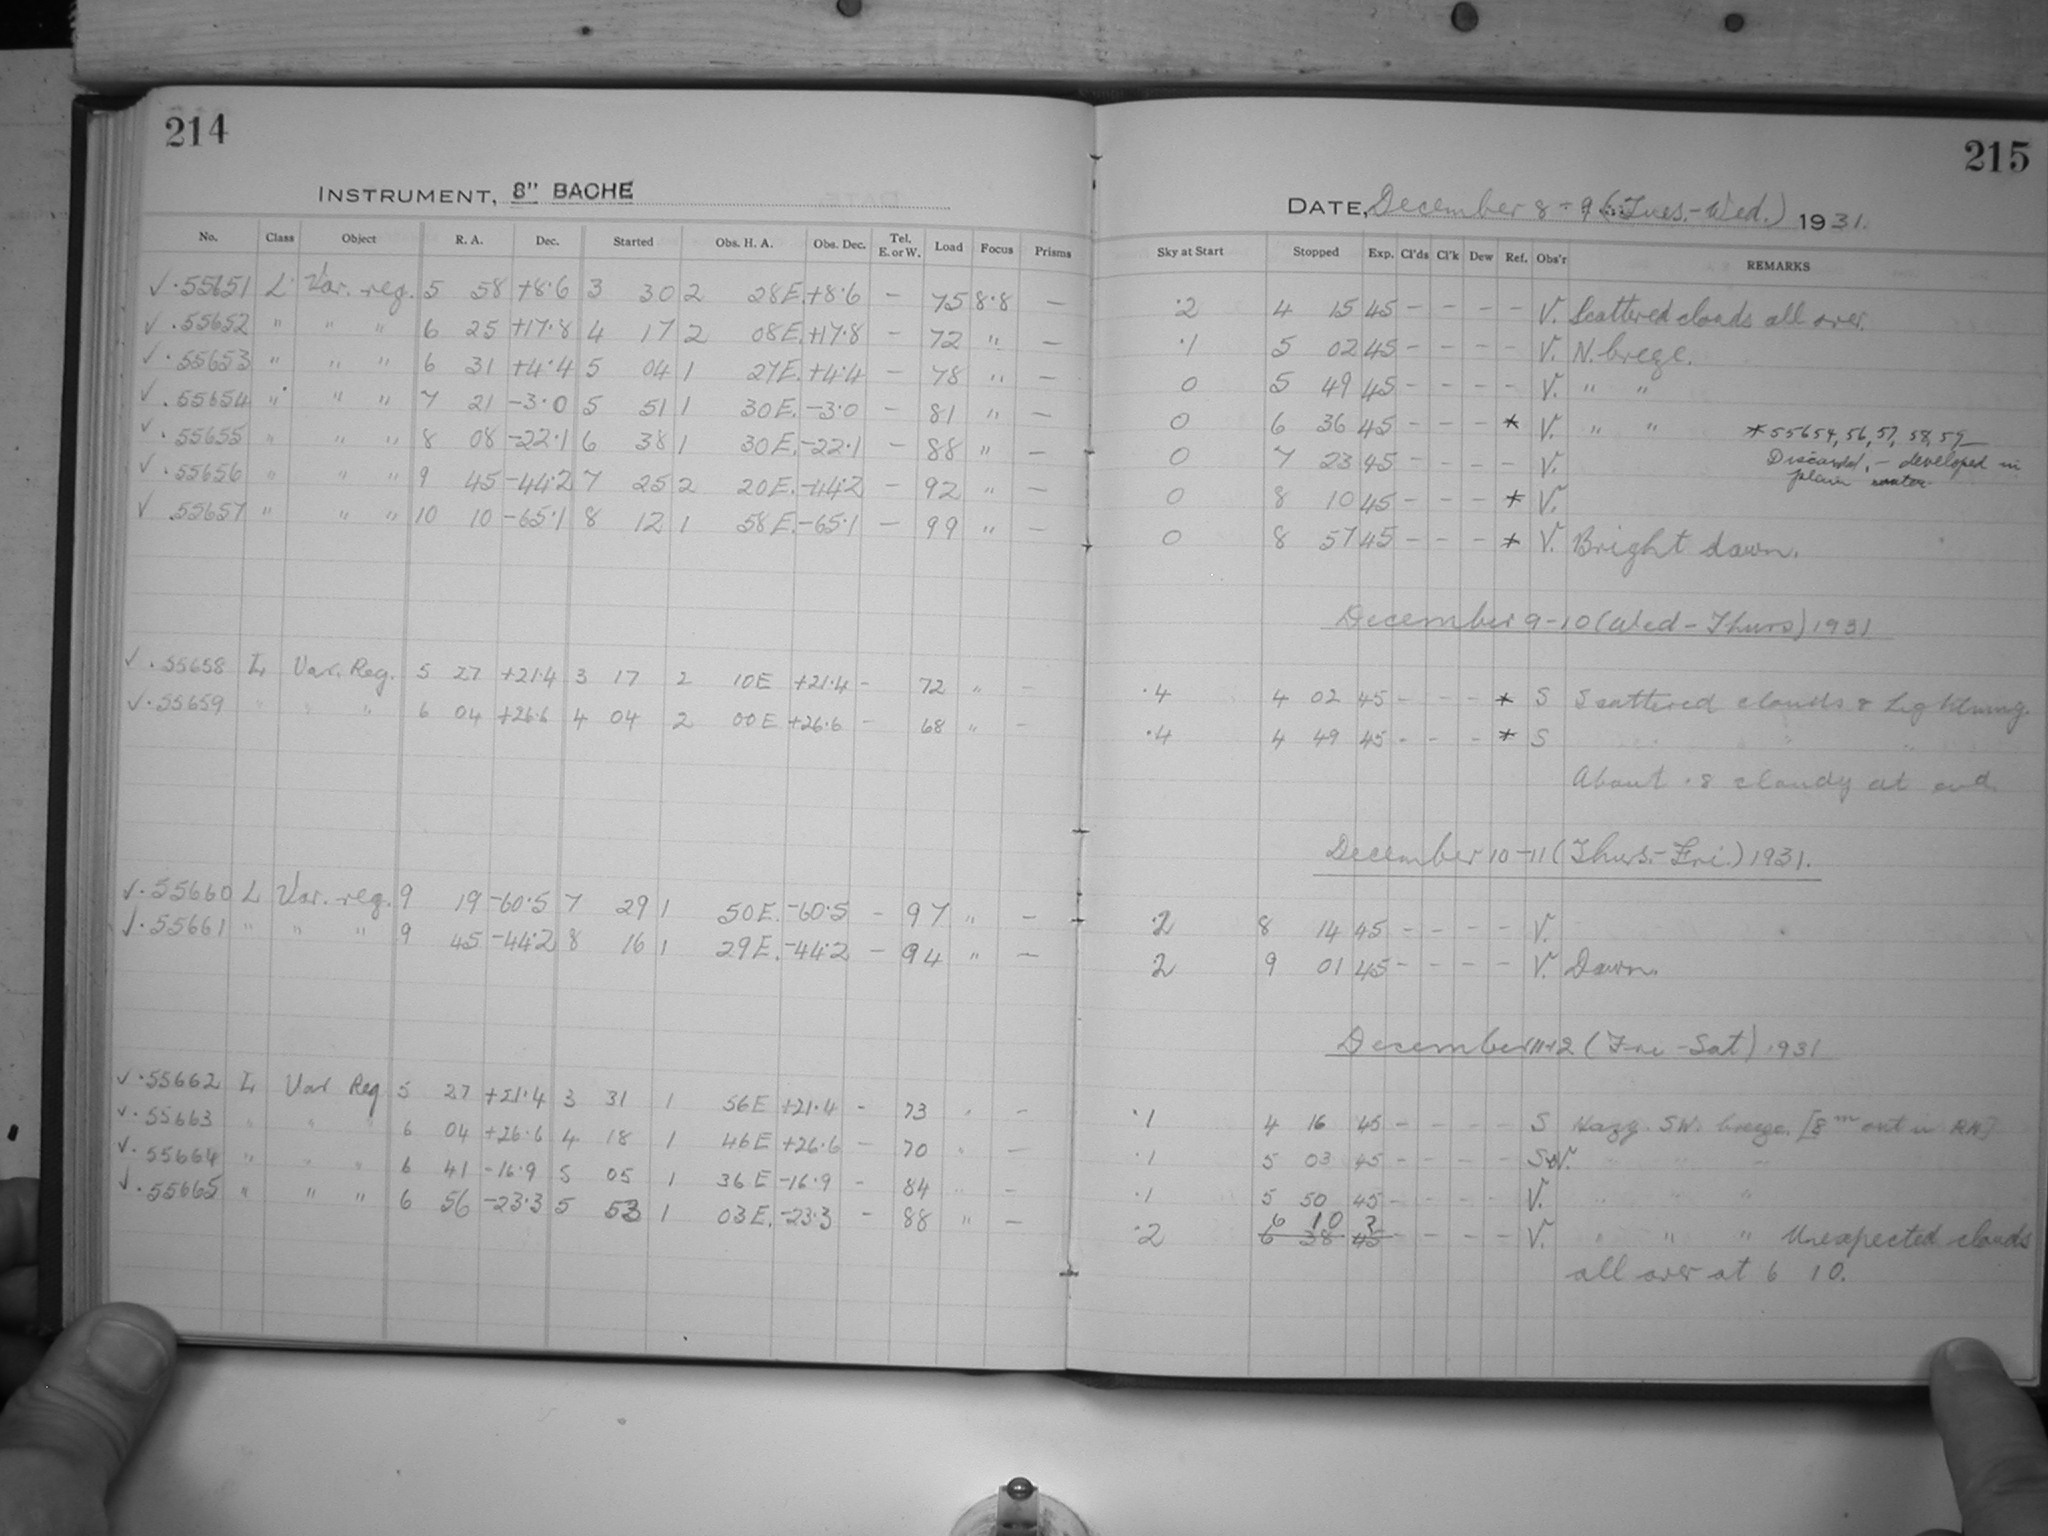 214
INSTRUMENT, 8" BACHE
No. Class Object R. A. Dec. Started Obs. H. A. Obs. Dec. Tel. E. or W. Load Focus Prisms
√ .55651 L Var. reg. 5 58 +8.6 3 30 2 28E. +8.6 — 75 8.8 —
√ .55652 " " " 6 25 +17.8 4 17 2 08E. +17.8 — 72 " —
√ .55653 " " " 6 31 +4.4 5 04 1 27E. +4.4 — 78 " —
√ .55654 " " " 7 21 -3.0 5 51 1 30E. -3.0 — 81 " —
√ .55655 " " " 8 08 -22.1 6 38 1 30E. -22.1 — 88 " —
√ .55656 " " " 9 45 -44.2 7 25 2 20E. -44.2 — 92 " —
√ .55657 " " " 10 10 -65.1 8 12 1 58E. -65.1 — 99 " —
√ .55658 L Var. Reg. 5 27 +21.4 3 17 2 10E +21.4 - 72 " —
√ .55659 " " " 6 04 +26.6 4 04 2 00E +26.6 - 68 " —
√ .55660 L Var. reg. 9 19 -60.5 7 29 1 50E. -60.5 - 97 " —
√ .55661 " " " 9 45 -44.2 8 16 1 29E. -44.2 — 94 " —
√ .55662 L Var Reg 5 27 +21.4 3 31 1 56E +21.4 - 73 " —
√ .55663 " " " 6 04 +26.6 4 18 1 46E +26.6 - 70 " —
√ .55664 " " " 6 41 -16.9 5 05 1 36E -16.9 - 84 " —
√ .55665 " " " 6 56 -23.3 5 53 1 03E. -23.3 — 88 " —
215
DATE, December 8-9 (Tues.-Wed.) 1931.
Sky at Start Stopped Exp. Cl'ds Cl'k Dew Ref. Obs'r REMARKS
.2 4 15 45 - - - - V. Scattered clouds all over.
.1 5 02 45 - - - - V. N. breeze.
0 5 49 45 - - - - V. " "
0 6 36 45 - - - * V. " "
*55654, 56, 57, 58, 59
Discarded, - developed in
plain water
0 7 23 45 - - - - V.
0 8 10 45 - - - * V.
0 8 57 45 - - - * V. Bright dawn.
December 9-10 (Wed-Thurs) 1931
.4 4 02 45 - - - * S Scattered clouds & Lightning.
.4 4 49 45 - - - * S " " "
About .8 cloudy at end.
December 10-11 (Thurs.-Fri.) 1931.
.2 8 14 45 - - - - V.
2 9 01 45 - - - - V. Dawn.
December 11-12 (Fri-Sat) 1931
.1 4 16 45 - - - - S Hazy. SW. breeze. [8m out in RA]
.1 5 03 45 - - - - S&V. " " "
.1 5 50 45 - - - - V. " " "
6 10
.2 6 38 45 - - - - V. " " " Unexpected clouds
all over at 6 10.